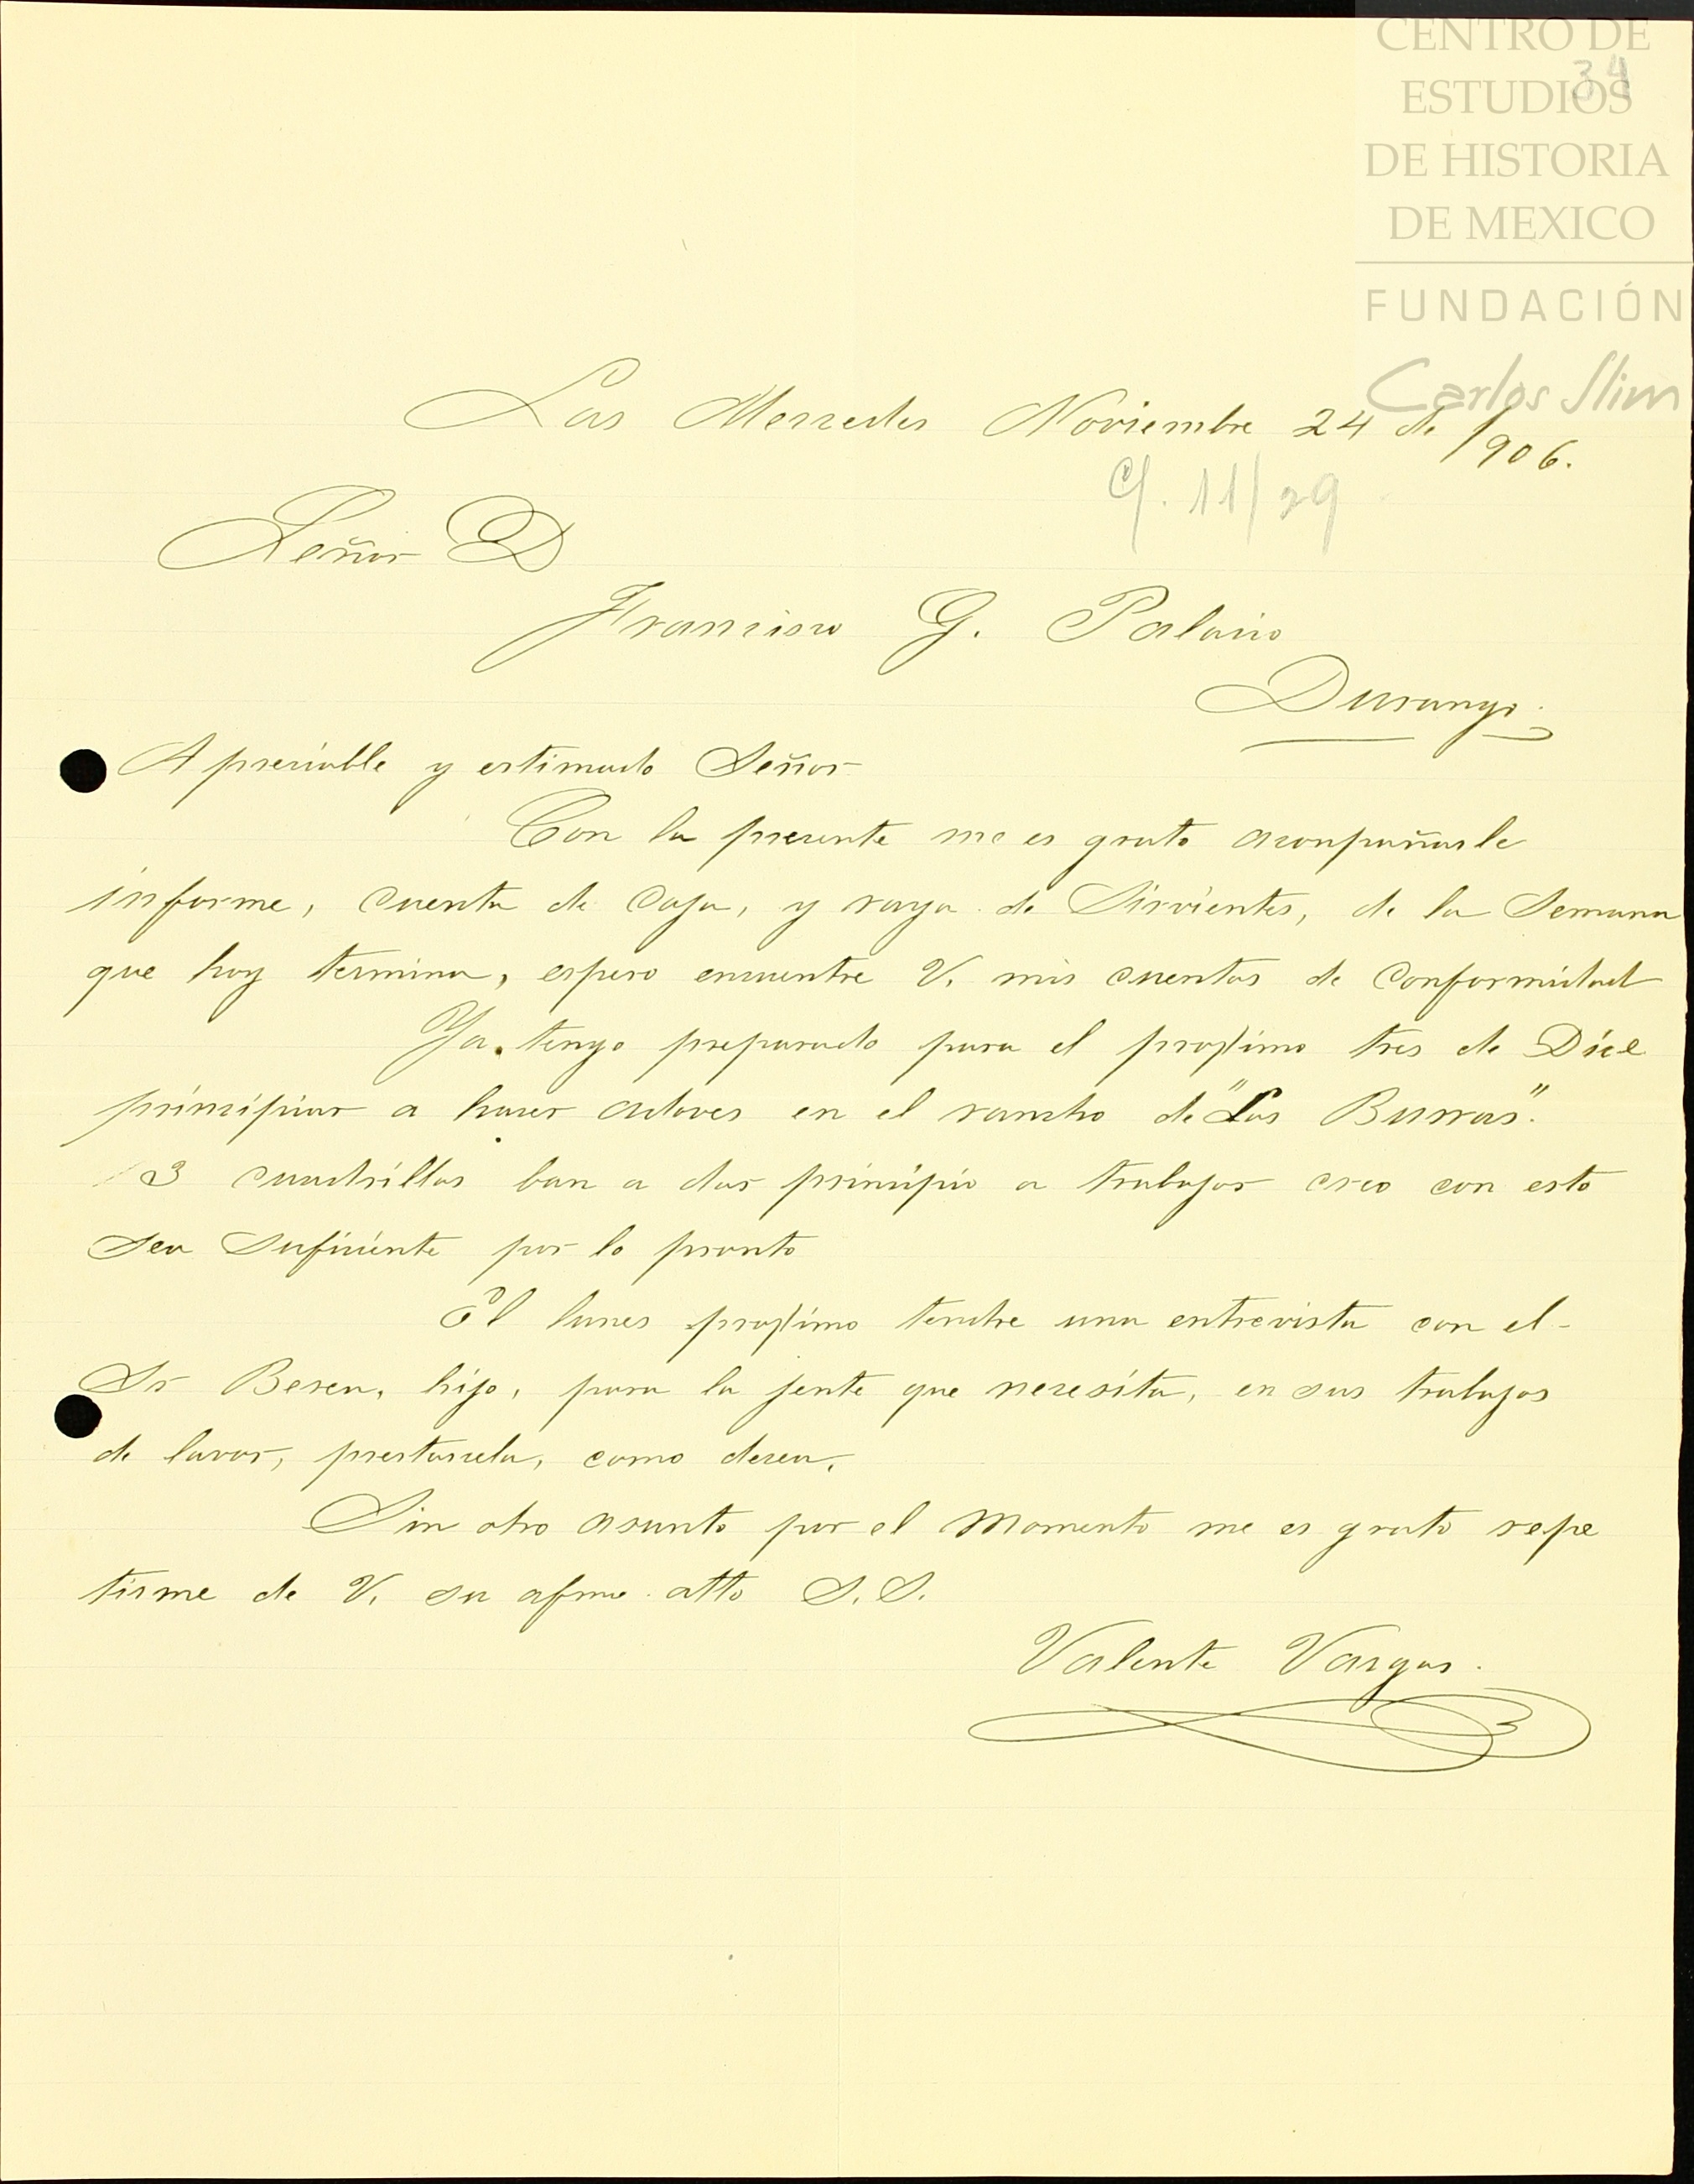 CENTRO DE
34
ESTUDIOS
DE HISTORIA
DE MEXICO
FUNDACIÓN
Carlos Slim
Las Mercedes Noviembre 24 de 1906.
C/. 11/29
Señor D
Francisco G. Palacio
Durango.
Apreciable y estimado Señor
Con la presente me es grato aconpañarle
informe, cuenta de caja, y raya de Sirvientes, de la Semana
que hoy termina, espero encuentre V. mis cuentas de conformidad
Ya tengo preparado para el proximo tres de Dice
principiar a hacer adoves en el rancho de "Las Burras".
3 cuadrillas ban a dar principio a trabajar creo con esto
sea suficiente por lo pronto
El lunes proximo tendre una entrevista con el
Sr Besea, hijo, para la jente que necesita, en sus trabajos
de lavor, prestarcela, como desea.
Sin otro asunto por el momento me es grato repe
tirme de V. su afmo atto S. S.
Valente Vargas.